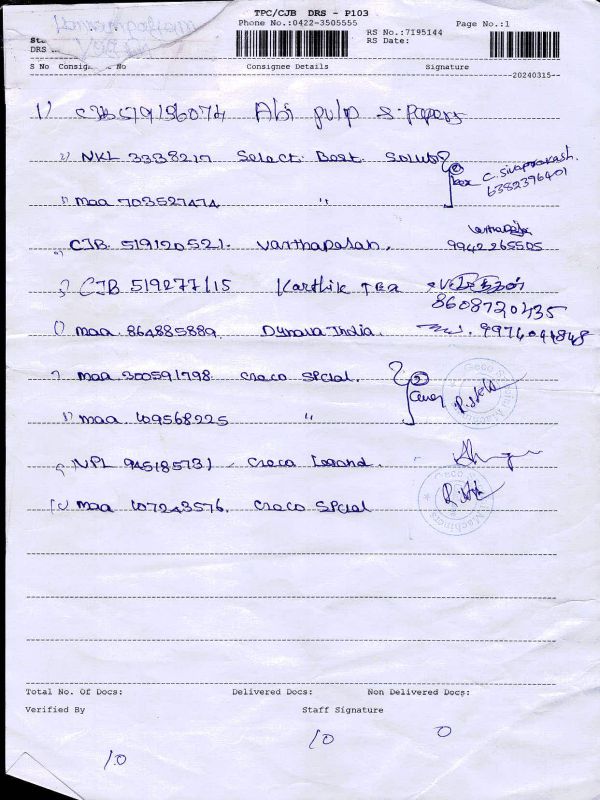 TPC/CJB DRS - P103
Phone No.:0422-3505555 Page No.:1
RS No.:7195144
RS Date:
DRS
S No Consig No Consignee Details Signature
20240315
1) CJB 519156074 Abi pulp & papers
2) NKL 3338217 Select Best Solut
Box C. Sivaprakash.
6382396401
maa 703527474 "
CJB. 519120521. Varthapasan. 9942265505
5) CJB 519277115 Karthik TEA
8608720435
maa. 864885889. Dynava India. 9974044848
7 maa 300591798 Creco SPcial.
2 Cover
maa 409568225 "
9 NPL 94518573) Creca Legand.
10 maa 407243576. Creco SPcial
Total No. Of Docs: Delivered Docs: Non Delivered Docs:
Verified By Staff Signature
10 10 0